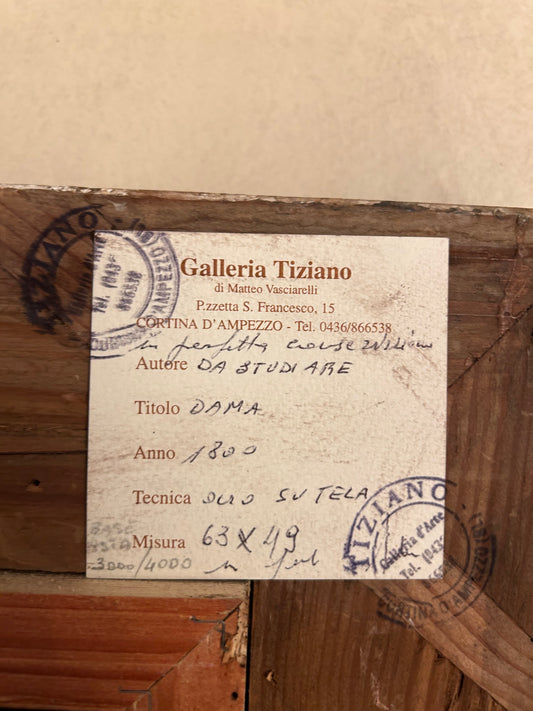 Galleria Tiziano
di Matteo Vasciarelli
P.zzetta S. Francesco, 15
CORTINA D'AMPEZZO - Tel. 0436/866538
in perfetta conservazione
Autore DA STUDIARE
Titolo DAMA
Anno 1800
Tecnica OLIO SU TELA
Misura 63 X 49
in
BASE
ASTA
3000/4000
TIZIANO
Tel. 0436
D'AMPEZZO (BL)
TIZIANO
Galleria d'Arte
Tel. 0436
CORTINA D'AMPEZZO (BL)